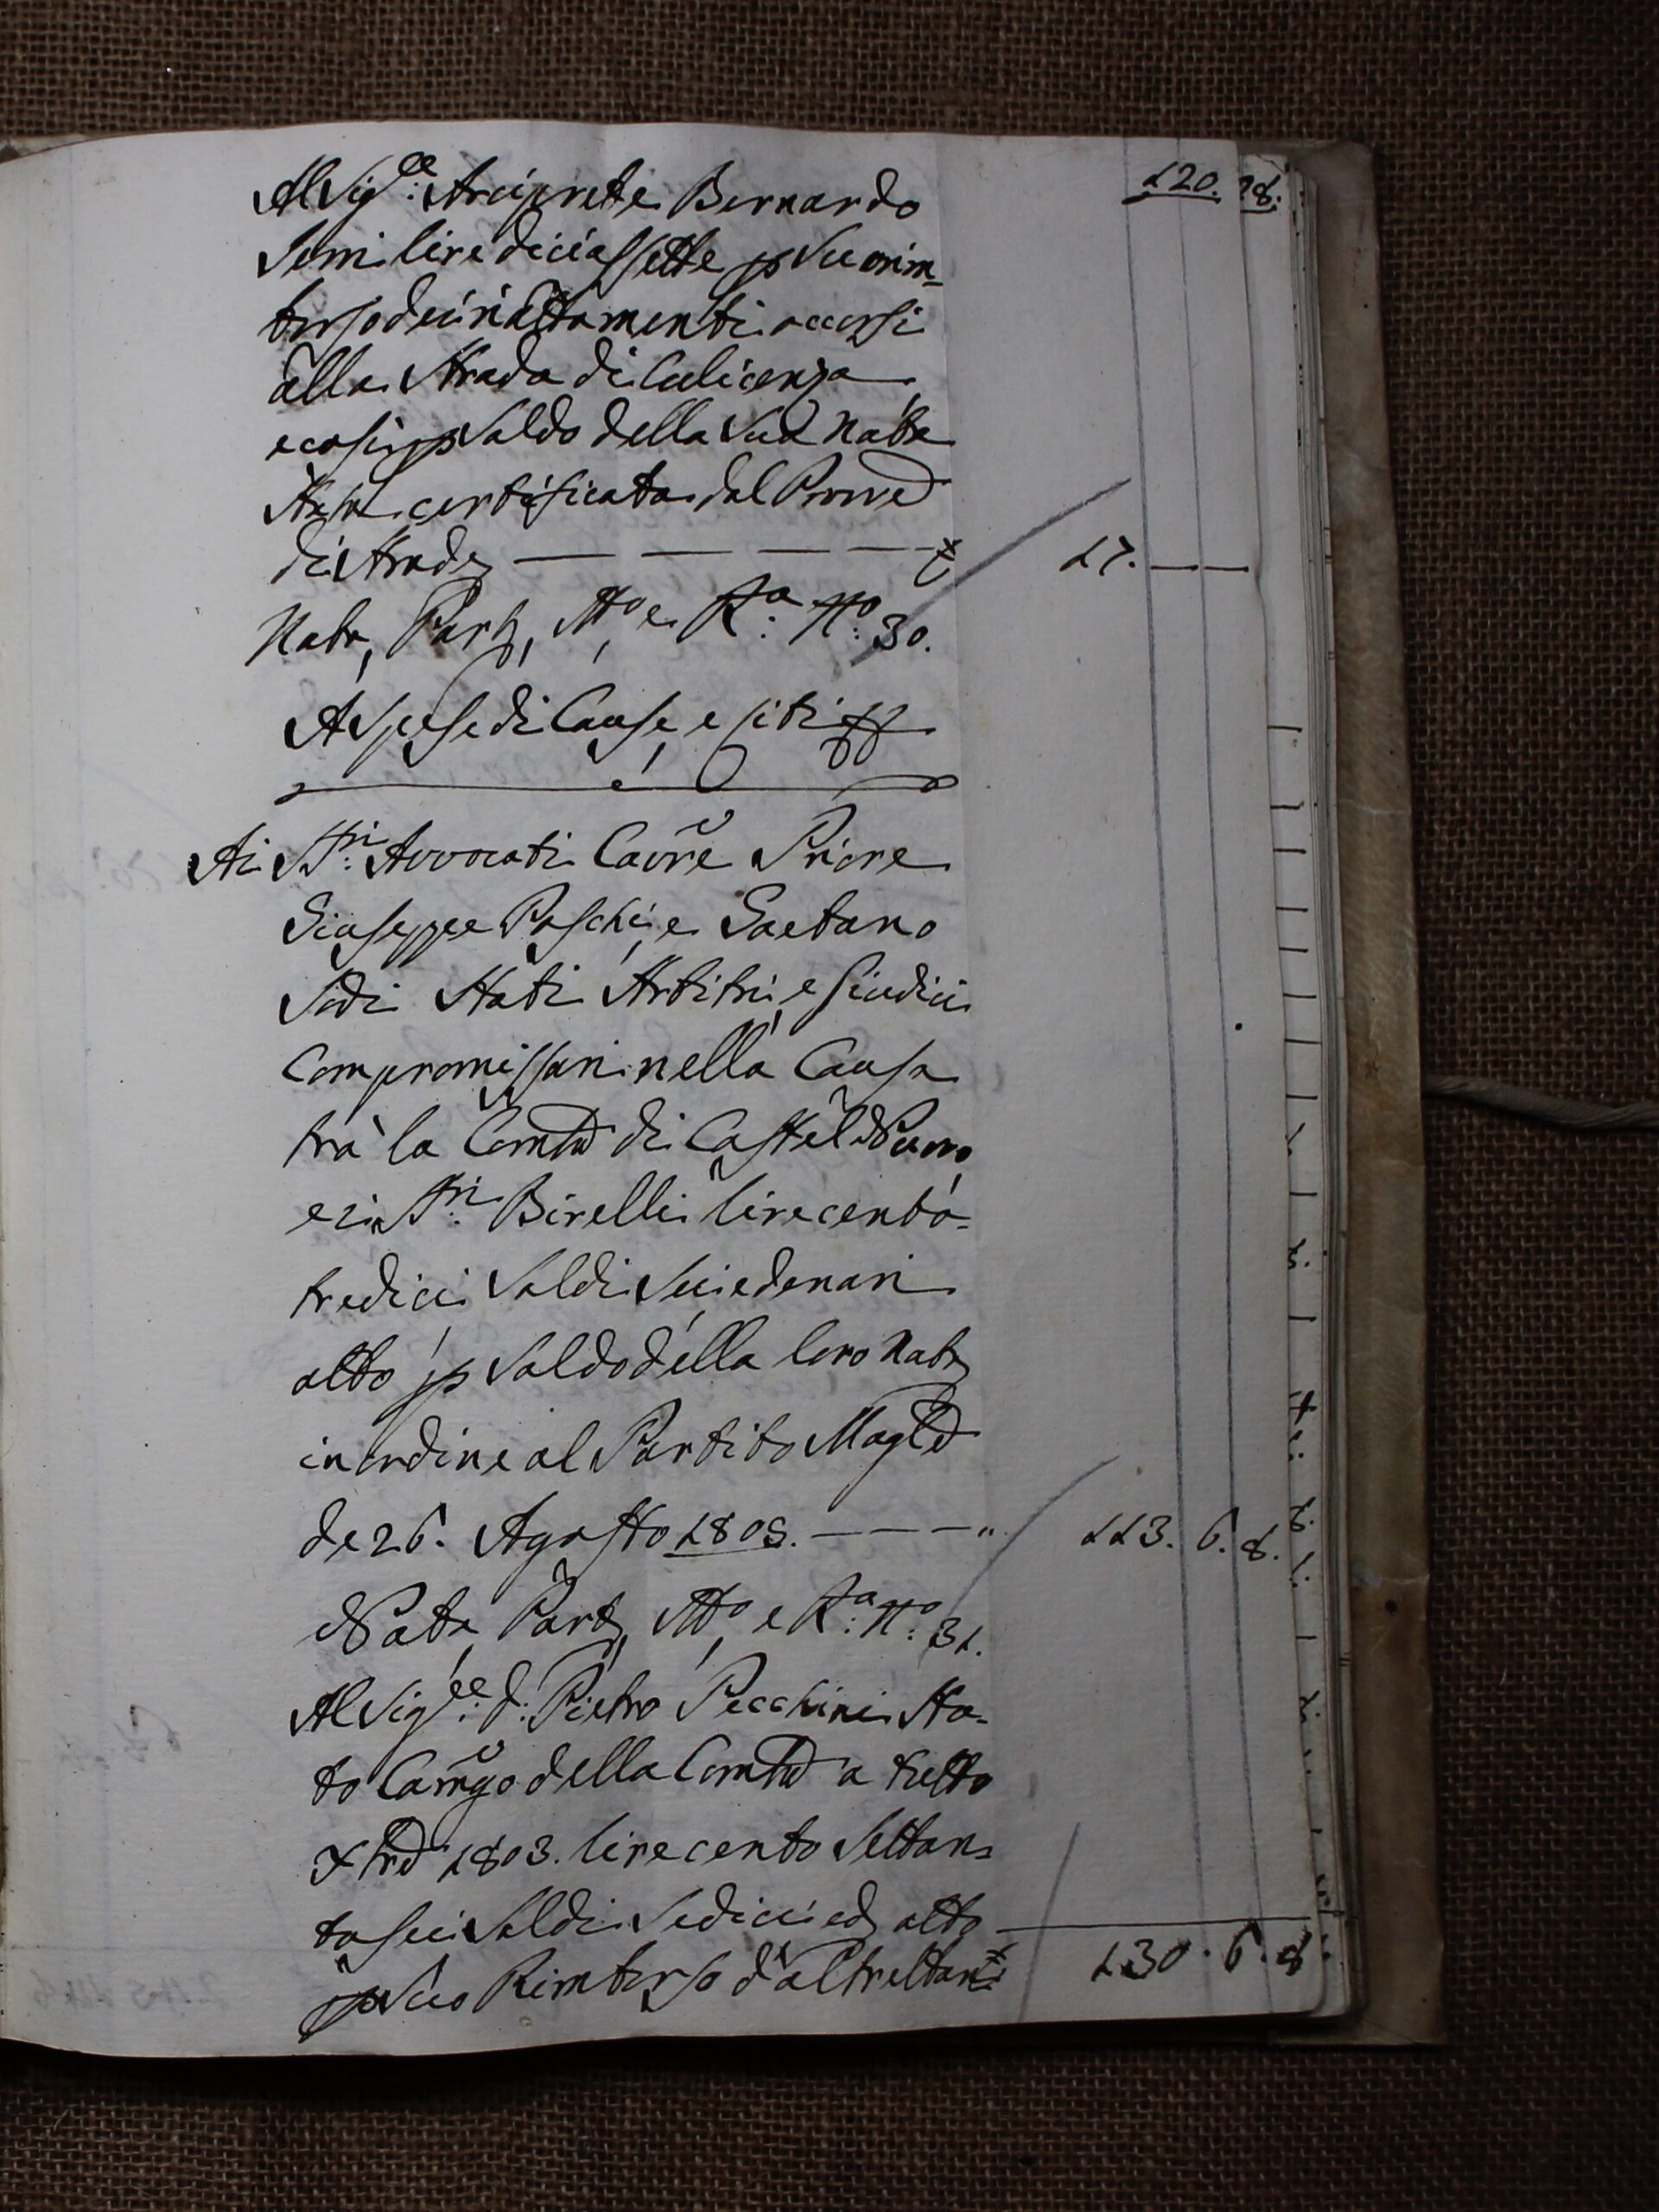 120. 18.
Al Sig.re Arciprete Bernardo
Semi lire diciassette p Suo rim-
borso dei riattamenti occorsi
alla Strada di Culicenza,
e così p Saldo della Sua Nota
certificata dal Provved
di Strade — — — — 17. — —
Nota, Part, Stto e Ra: No: 30.
A Spese di Cause, e liti
Ai SS.ri Avvocati Cavre Priore
Giuseppe Paschi, e Gaetano
Sodi Stati Arbitri, e Giudici
Compromissari nella Causa
trà la Comtà di Castel Nuovo,
e i SS.ri Birelli lire cento-
tredici Soldi Sei, e denari
otto p Saldo della loro Nota
in ordine al Partito Magle
de 26. Agosto 1803. — — — " 113. 6. 8.
Nota, Part, Stto, e Ra: No: 31.
Al Sig.re D: Pietro Pecchini Sta-
to Camgo della Comtà a tutto
Xbre 1803. lire cento Settan-
tasei Soldi Sedici ed otto
p Suo Rimborso d'altrettante
130. 6. 8